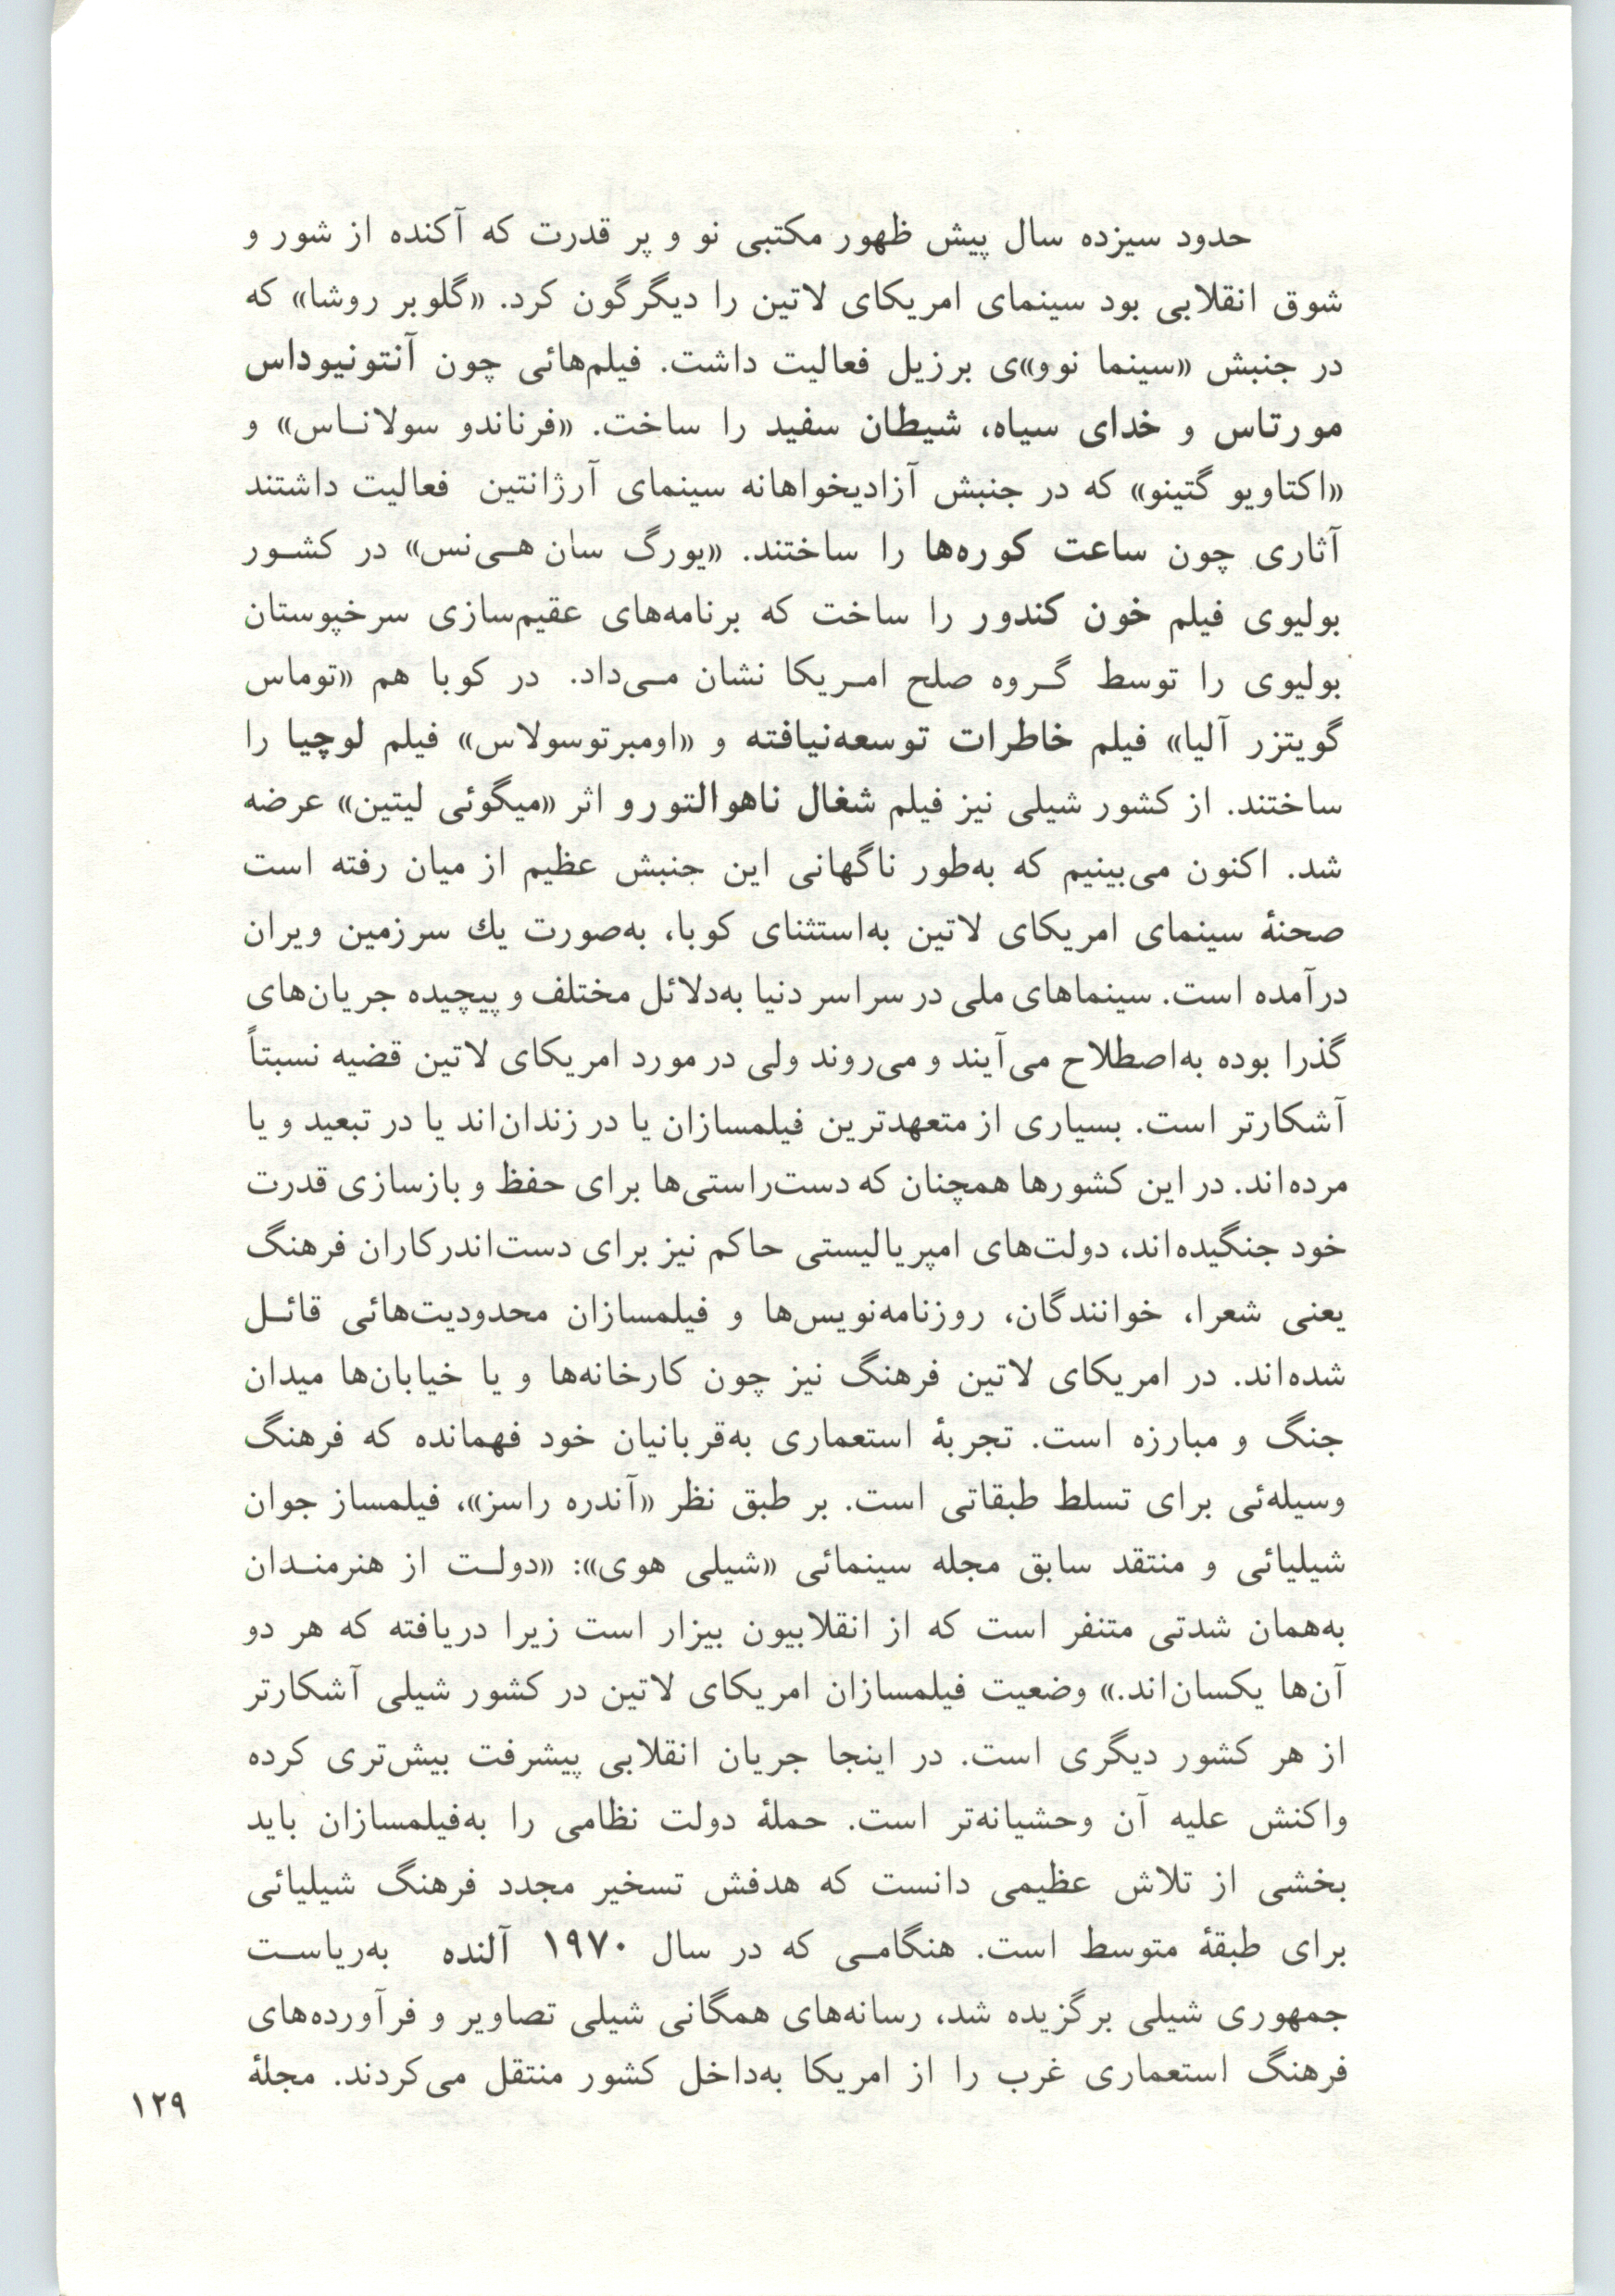 حدود سیزده سال پیش ظهور مکتبی نو و پر قدرت که آکنده از شور و
شوق انقلابی بود سینمای امریکای لاتین را دیگرگون کرد. «گلوبر روشا» که
در جنبش «سینما نوو»ی برزیل فعالیت داشت. فیلم‌هائی چون آنتونیوداس
مورتاس و خدای سیاه، شیطان سفید را ساخت. «فرناندو سولانـاس» و
«اکتاویو گتینو» که در جنبش آزادیخواهانه سینمای آرژانتین فعالیت داشتند
آثاری چون ساعت کوره‌ها را ساختند. «یورگ سان هـی‌نس» در کشـور
بولیوی فیلم خون کندور را ساخت که برنامه‌های عقیم‌سازی سرخپوستان
بولیوی را توسط گـروه صلح امـریکا نشان مـی‌داد. در کوبا هم «توماس
گویتزر آلیا» فیلم خاطرات توسعه‌نیافته و «اومبرتوسولاس» فیلم لوچیا را
ساختند. از کشور شیلی نیز فیلم شغال ناهوالتورو اثر «میگوئی لیتین» عرضه
شد. اکنون می‌بینیم که به‌طور ناگهانی این جنبش عظیم از میان رفته است
صحنهٔ سینمای امریکای لاتین به‌استثنای کوبا، به‌صورت یك سرزمین ویران
درآمده است. سینماهای ملی در سراسر دنیا به‌دلائل مختلف و پیچیده جریان‌های
گذرا بوده به‌اصطلاح می‌آیند و می‌روند ولی در مورد امریکای لاتین قضیه نسبتاً
آشکارتر است. بسیاری از متعهدترین فیلمسازان یا در زندان‌اند یا در تبعید و یا
مرده‌اند. در این کشورها همچنان که دست‌راستی‌ها برای حفظ و بازسازی قدرت
خود جنگیده‌اند، دولت‌های امپریالیستی حاکم نیز برای دست‌اندرکاران فرهنگ
یعنی شعرا، خوانندگان، روزنامه‌نویس‌ها و فیلمسازان محدودیت‌هائی قائـل
شده‌اند. در امریکای لاتین فرهنگ نیز چون کارخانه‌ها و یا خیابان‌ها میدان
جنگ و مبارزه است. تجربهٔ استعماری به‌قربانیان خود فهمانده که فرهنگ
وسیله‌ئی برای تسلط طبقاتی است. بر طبق نظر «آندره راسز»، فیلمساز جوان
شیلیائی و منتقد سابق مجله سینمائی «شیلی هوی»: «دولـت از هنرمنـدان
به‌همان شدتی متنفر است که از انقلابیون بیزار است زیرا دریافته که هر دو
آن‌ها یکسان‌اند.» وضعیت فیلمسازان امریکای لاتین در کشور شیلی آشکارتر
از هر کشور دیگری است. در اینجا جریان انقلابی پیشرفت بیش‌تری کرده
واکنش علیه آن وحشیانه‌تر است. حملهٔ دولت نظامی را به‌فیلمسازان باید
بخشی از تلاش عظیمی دانست که هدفش تسخیر مجدد فرهنگ شیلیائی
برای طبقهٔ متوسط است. هنگامـی که در سال ۱۹۷۰ آلنده به‌ریاسـت
جمهوری شیلی برگزیده شد، رسانه‌های همگانی شیلی تصاویر و فرآورده‌های
فرهنگ استعماری غرب را از امریکا به‌داخل کشور منتقل می‌کردند. مجلهٔ
۱۲۹